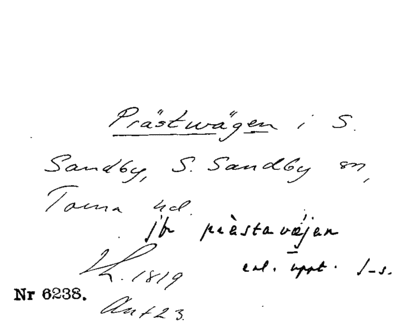 Prästwägen i S.
Sandby, S. Sandby sn,
Torna hd.
jfr prästavägen
enl. uppt. J-s.
Lh. 1819
Nr 6238.
Ant 23.